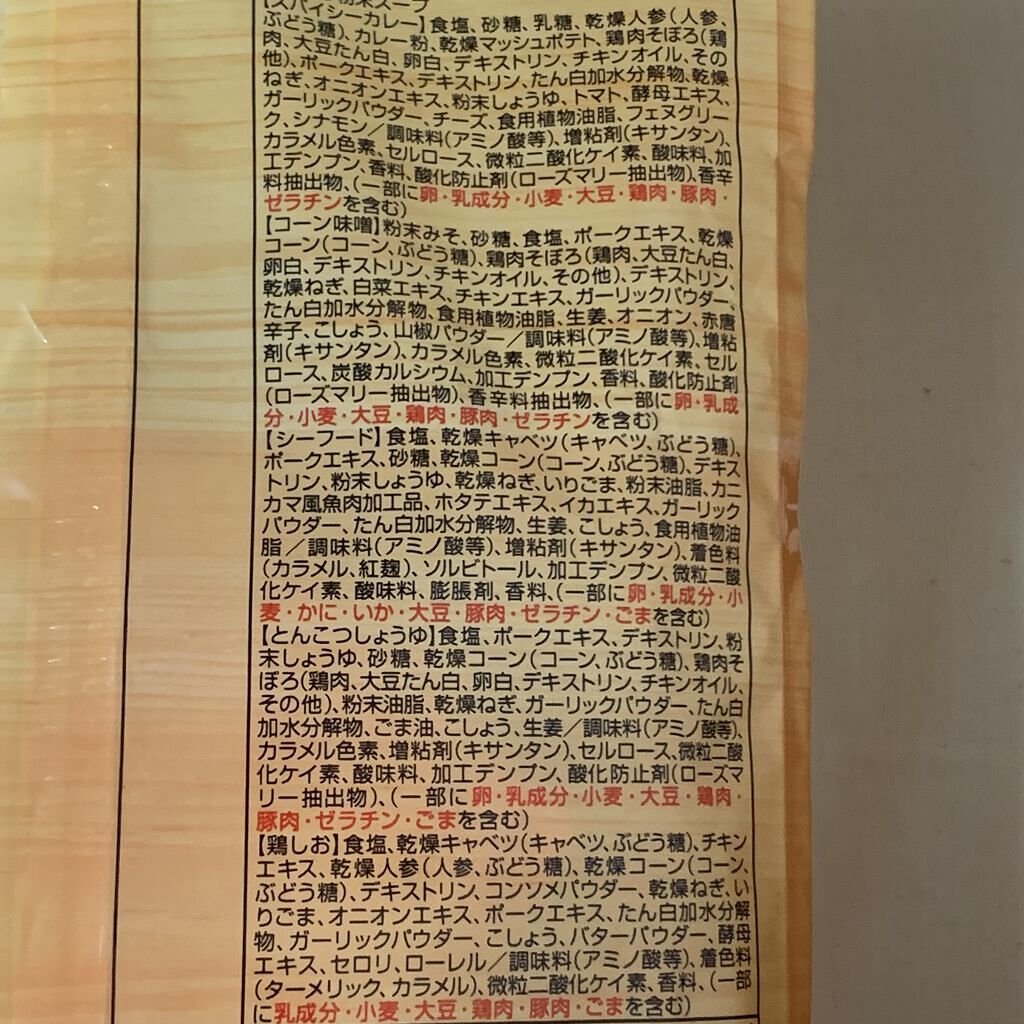 粉末スープ
【スパイシーカレー】食塩、砂糖、乳糖、乾燥人参(人参、
ぶどう糖)、カレー粉、乾燥マッシュポテト、鶏肉そぼろ(鶏
肉、大豆たん白、卵白、デキストリン、チキンオイル、その
他)、ポークエキス、デキストリン、たん白加水分解物、乾燥
ねぎ、オニオンエキス、粉末しょうゆ、トマト、酵母エキス、
ガーリックパウダー、チーズ、食用植物油脂、フェヌグリー
ク、シナモン／調味料(アミノ酸等)、増粘剤(キサンタン)、
カラメル色素、セルロース、微粒二酸化ケイ素、酸味料、加
工デンプン、香料、酸化防止剤(ローズマリー抽出物)、香辛
料抽出物、(一部に卵・乳成分・小麦・大豆・鶏肉・豚肉・
ゼラチンを含む)
【コーン味噌】粉末みそ、砂糖、食塩、ポークエキス、乾燥
コーン(コーン、ぶどう糖)、鶏肉そぼろ(鶏肉、大豆たん白、
卵白、デキストリン、チキンオイル、その他)、デキストリン、
乾燥ねぎ、白菜エキス、チキンエキス、ガーリックパウダー、
たん白加水分解物、食用植物油脂、生姜、オニオン、赤唐
辛子、こしょう、山椒パウダー／調味料(アミノ酸等)、増粘
剤(キサンタン)、カラメル色素、微粒二酸化ケイ素、セル
ロース、炭酸カルシウム、加工デンプン、香料、酸化防止剤
(ローズマリー抽出物)、香辛料抽出物、(一部に卵・乳成
分・小麦・大豆・鶏肉・豚肉・ゼラチンを含む)
【シーフード】食塩、乾燥キャベツ(キャベツ、ぶどう糖)、
ポークエキス、砂糖、乾燥コーン(コーン、ぶどう糖)、デキス
トリン、粉末しょうゆ、乾燥ねぎ、いりごま、粉末油脂、カニ
カマ風魚肉加工品、ホタテエキス、イカエキス、ガーリック
パウダー、たん白加水分解物、生姜、こしょう、食用植物油
脂／調味料(アミノ酸等)、増粘剤(キサンタン)、着色料
(カラメル、紅麹)、ソルビトール、加工デンプン、微粒二酸
化ケイ素、酸味料、膨脹剤、香料、(一部に卵・乳成分・小
麦・かに・いか・大豆・豚肉・ゼラチン・ごまを含む)
【とんこつしょうゆ】食塩、ポークエキス、デキストリン、粉
末しょうゆ、砂糖、乾燥コーン(コーン、ぶどう糖)、鶏肉そ
ぼろ(鶏肉、大豆たん白、卵白、デキストリン、チキンオイル、
その他)、粉末油脂、乾燥ねぎ、ガーリックパウダー、たん白
加水分解物、ごま油、こしょう、生姜／調味料(アミノ酸等)、
カラメル色素、増粘剤(キサンタン)、セルロース、微粒二酸
化ケイ素、酸味料、加工デンプン、酸化防止剤(ローズマ
リー抽出物)、(一部に卵・乳成分・小麦・大豆・鶏肉・
豚肉・ゼラチン・ごまを含む)
【鶏しお】食塩、乾燥キャベツ(キャベツ、ぶどう糖)、チキン
エキス、乾燥人参(人参、ぶどう糖)、乾燥コーン(コーン、
ぶどう糖)、デキストリン、コンソメパウダー、乾燥ねぎ、い
りごま、オニオンエキス、ポークエキス、たん白加水分解
物、ガーリックパウダー、こしょう、バターパウダー、酵母
エキス、セロリ、ローレル／調味料(アミノ酸等)、着色料
(ターメリック、カラメル)、微粒二酸化ケイ素、香料、(一部
に乳成分・小麦・大豆・鶏肉・豚肉・ごまを含む)